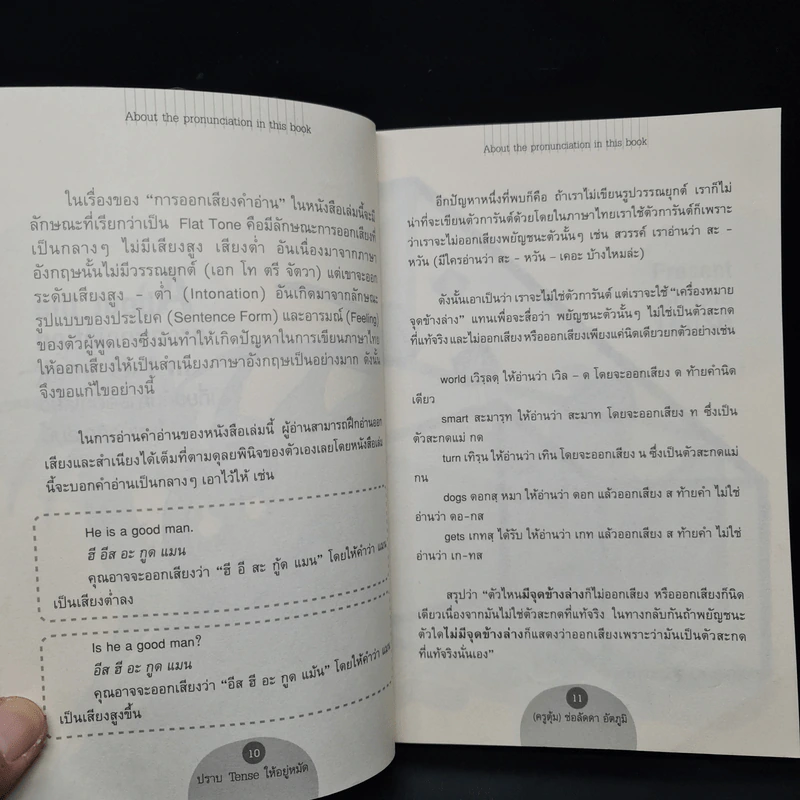 About the pronunciation in this book
ในเรื่องของ “การออกเสียงคำอ่าน” ในหนังสือเล่มนี้จะมี
ลักษณะที่เรียกว่าเป็น Flat Tone คือมีลักษณะการออกเสียงที่
เป็นกลางๆ ไม่มีเสียงสูง เสียงต่ำ อันเนื่องมาจากภาษา
อังกฤษนั้นไม่มีวรรณยุกต์ (เอก โท ตรี จัตวา) แต่เขาจะออก
ระดับเสียงสูง - ต่ำ (Intonation) อันเกิดมาจากลักษณะ
รูปแบบของประโยค (Sentence Form) และอารมณ์ (Feeling)
ของตัวผู้พูดเองซึ่งมันทำให้เกิดปัญหาในการเขียนภาษาไทย
ให้ออกเสียงให้เป็นสำเนียงภาษาอังกฤษเป็นอย่างมาก ดังนั้น
จึงขอแก้ไขอย่างนี้
ในการอ่านคำอ่านของหนังสือเล่มนี้ ผู้อ่านสามารถฝึกอ่านออก
เสียงและสำเนียงได้เต็มที่ตามดุลยพินิจของตัวเองเลยโดยหนังสือเล่ม
นี้จะบอกคำอ่านเป็นกลางๆ เอาไว้ให้ เช่น
He is a good man.
ฮี อีส อะ กูด แมน
คุณอาจจะออกเสียงว่า “ฮี อี สะ กู้ด แมน” โดยให้คำว่า แมน
เป็นเสียงต่ำลง
Is he a good man?
อีส ฮี อะ กูด แมน
คุณอาจจะออกเสียงว่า “อีส ฮี อะ กูด แม้น” โดยให้คำว่า แมน
เป็นเสียงสูงขึ้น
10
ปราบ Tense ให้อยู่หมัด
About the pronunciation in this book
อีกปัญหาหนึ่งที่พบก็คือ ถ้าเราไม่เขียนรูปวรรณยุกต์ เราก็ไม่
น่าที่จะเขียนตัวการันต์ด้วยโดยในภาษาไทยเราใช้ตัวการันต์ก็เพราะ
ว่าเราจะไม่ออกเสียงพยัญชนะตัวนั้นๆ เช่น สวรรค์ เราอ่านว่า สะ -
หวัน (มีใครอ่านว่า สะ - หวัน - เคอะ บ้างไหมล่ะ)
ดังนั้นเอาเป็นว่า เราจะไม่ใช้ตัวการันต์ แต่เราจะใช้ “เครื่องหมาย
จุดข้างล่าง” แทนเพื่อจะสื่อว่า พยัญชนะตัวนั้นๆ ไม่ใช่เป็นตัวสะกด
ที่แท้จริง และไม่ออกเสียง หรือออกเสียงเพียงแค่นิดเดียวยกตัวอย่างเช่น
world เวิรฺลดฺ ให้อ่านว่า เวิล – ด โดยจะออกเสียง ด ท้ายคำนิด
เดียว
smart สะมารฺท ให้อ่านว่า สะมาท โดยจะออกเสียง ท ซึ่งเป็น
ตัวสะกดแม่ กด
turn เทิรฺน ให้อ่านว่า เทิน โดยจะออกเสียง น ซึ่งเป็นตัวสะกดแม่
กน
dogs ดอกสฺ หมา ให้อ่านว่า ดอก แล้วออกเสียง ส ท้ายคำ ไม่ใช่
อ่านว่า ดอ-กส
gets เกทสฺ ได้รับ ให้อ่านว่า เกท แล้วออกเสียง ส ท้ายคำ ไม่ใช่
อ่านว่า เก-ทส
สรุปว่า “ตัวไหนมีจุดข้างล่างก็ไม่ออกเสียง หรือออกเสียงก็นิด
เดียวเนื่องจากมันไม่ใช่ตัวสะกดที่แท้จริง ในทางกลับกันถ้าพยัญชนะ
ตัวใดไม่มีจุดข้างล่างก็แสดงว่าออกเสียงเพราะว่ามันเป็นตัวสะกด
ที่แท้จริงนั่นเอง”
11
(ครูตุ้ม) ช่อลัดดา อัตภูมิ